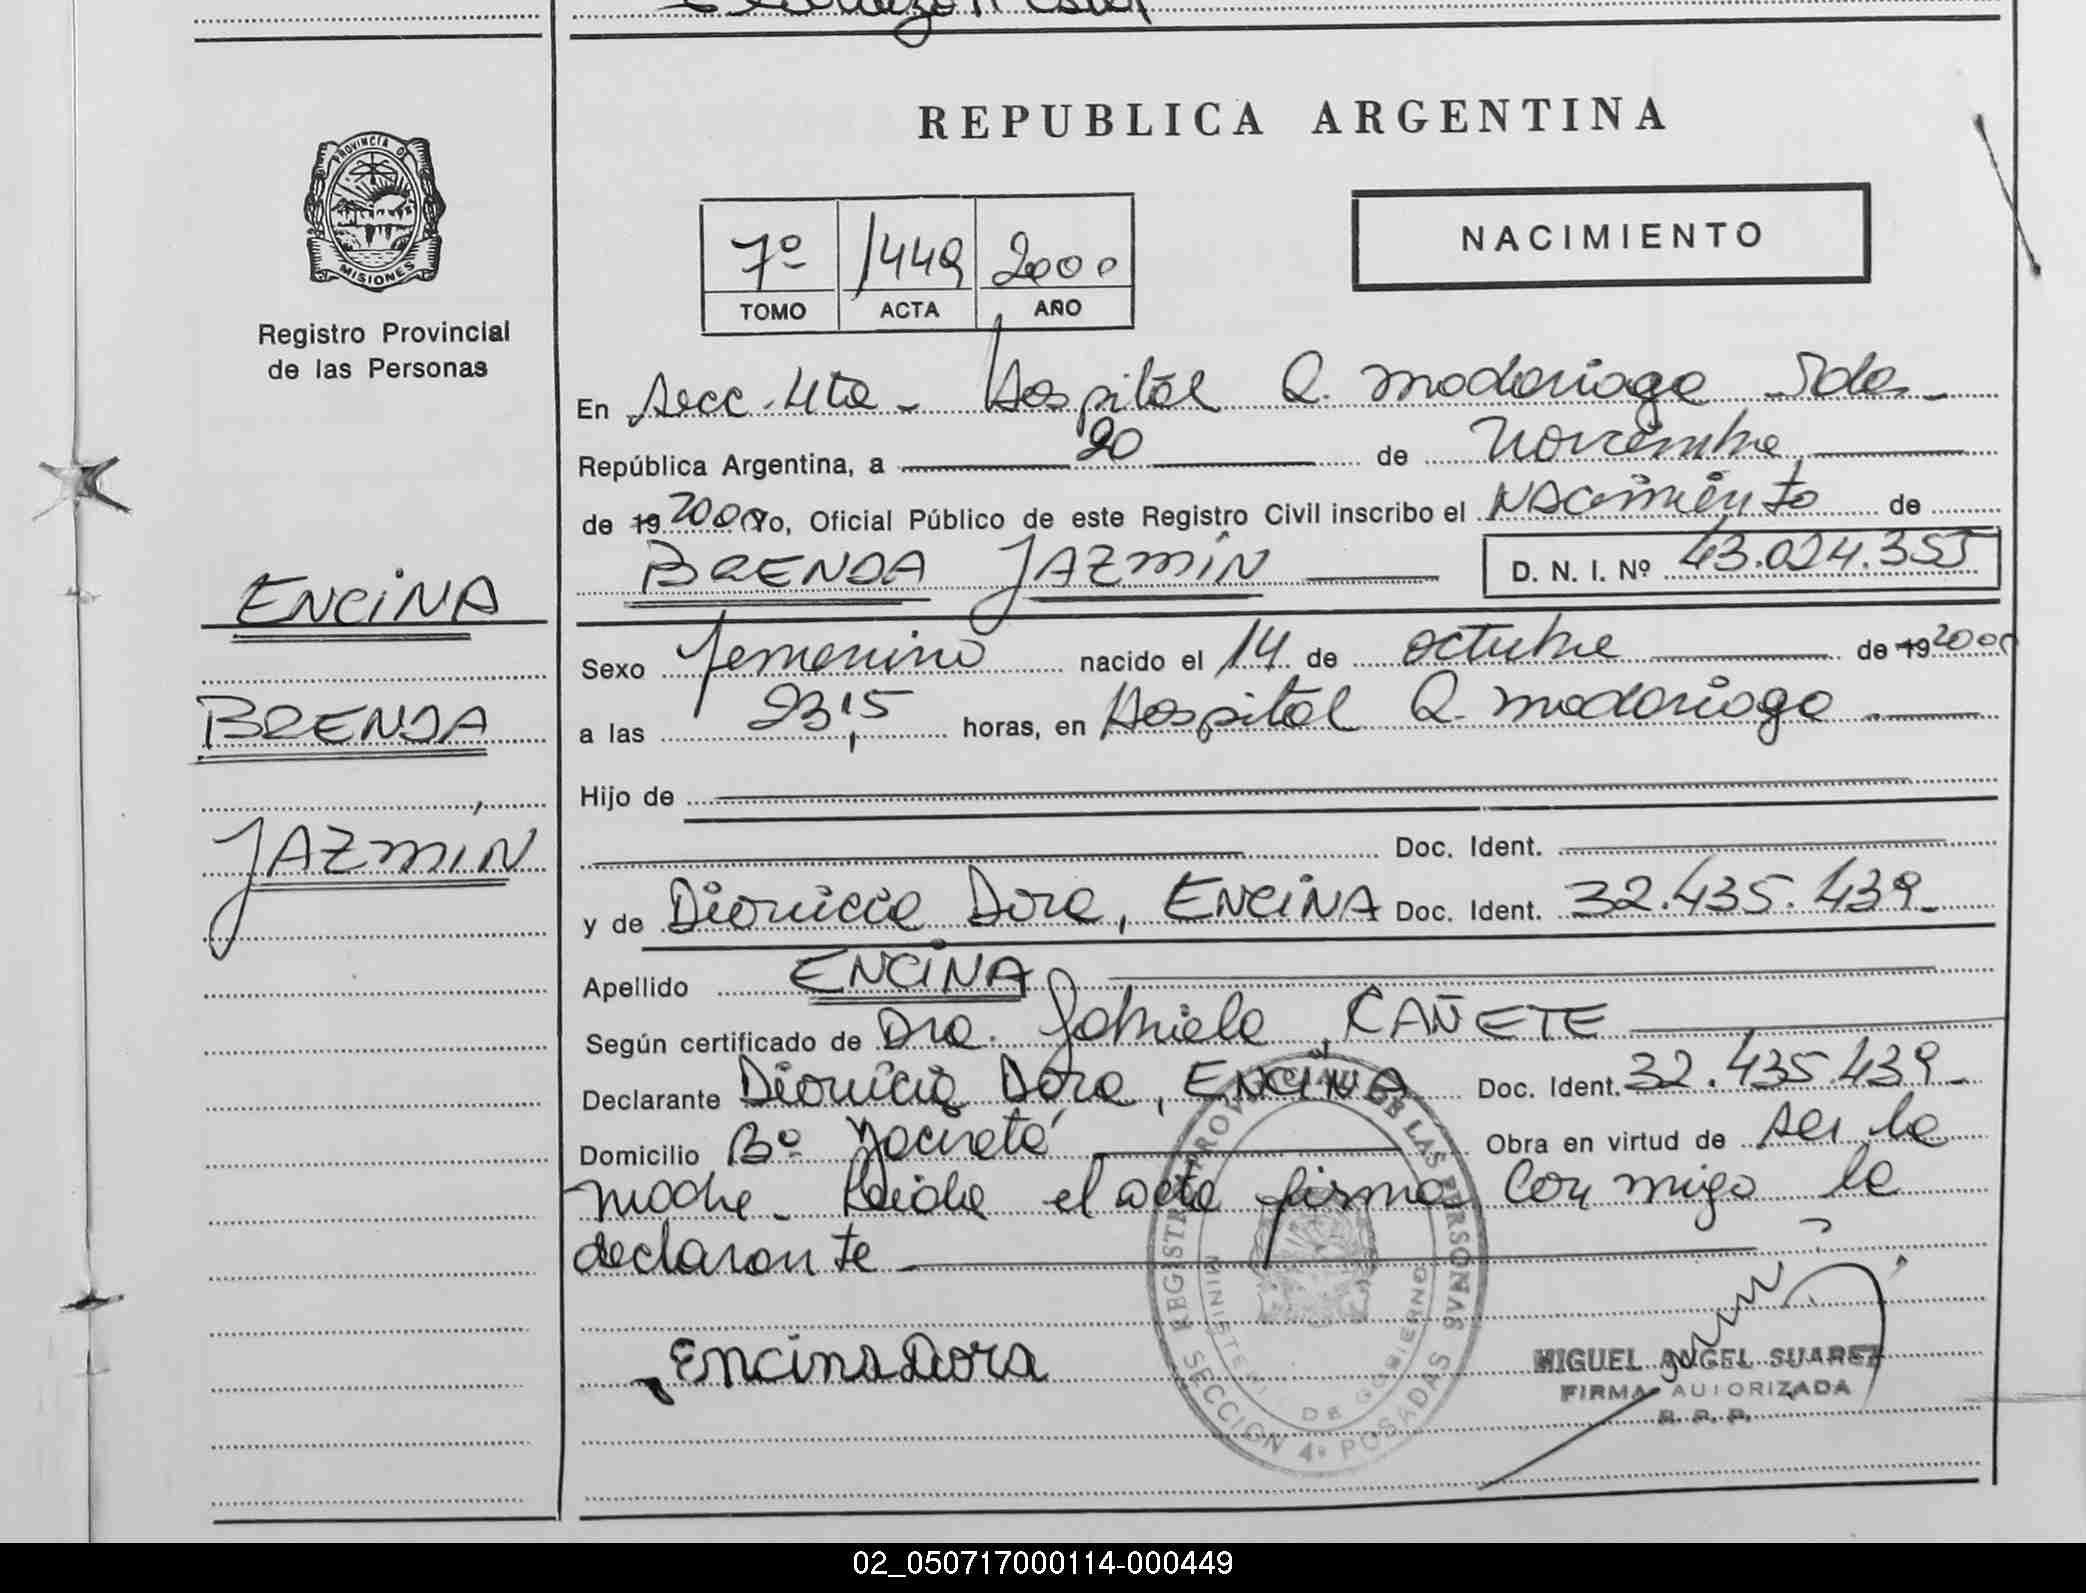 REPUBLICA ARGENTINA
PROVINCIA D
MISIONES
Registro Provincial
de las Personas
NACIMIENTO
7º 1449 2000
TOMO ACTA AÑO
En Secc. 4ta - Hospital R. Madariaga Pdas -
República Argentina, a 20 de Noviembre
de 19 2000 Yo, Oficial Público de este Registro Civil inscribo el NACimiento de
BRENDA JAZMÍN D. N. I. Nº 43.024.355
ENCiNA
BRENDA
JAZMÍN
Sexo femenino nacido el 14 de octubre de 19 2000
a las 23,15 horas, en Hospital R. Madariaga.
Hijo de
Doc. Ident.
y de Dionicia Dora, ENCiNA Doc. Ident. 32.435.439-
Apellido ENCiNA
Según certificado de Dra. Gabriela CAÑETE
Declarante Dionicia Dora, ENCiNA Doc. Ident. 32.435.439-
Domicilio Bº Yacireta Obra en virtud de ser la
madre - Leida el acta firma conmigo la
declarante
Encina Dora
REGISTRO PROVINCIAL DE LAS PERSONAS
MINISTERIO DE GOBIERNO
SECCION 4º POSADAS
MIGUEL ANGEL SUAREZ
FIRMA AUTORIZADA
R. P. P.
02_050717000114-000449